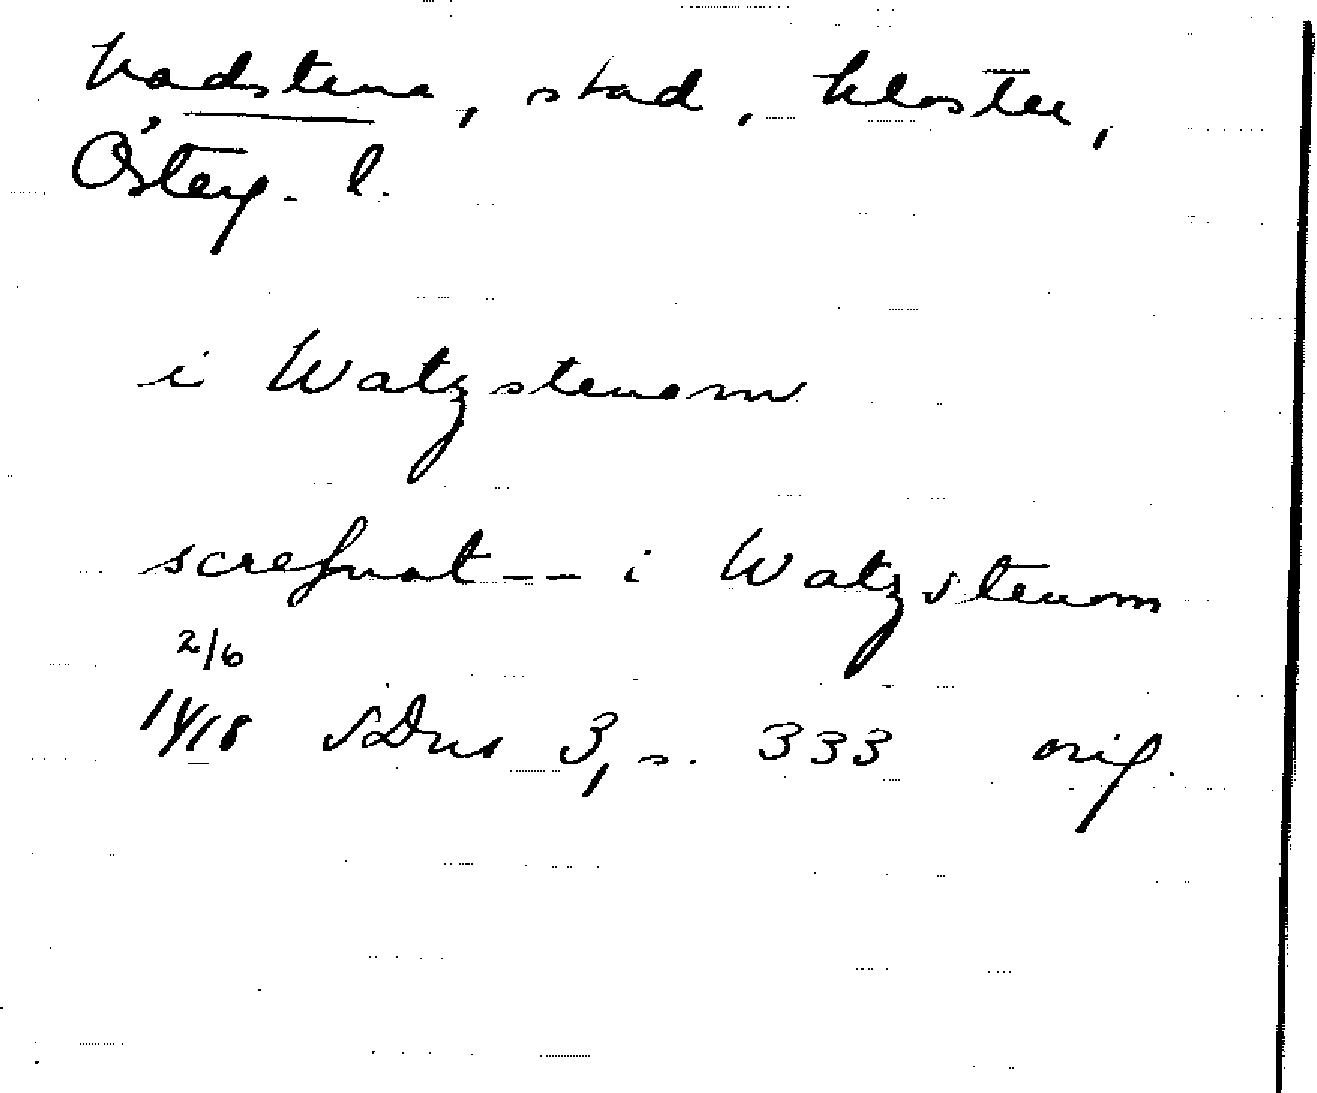 Vadstena, stad, kloster,
Österg. l.
i Watzstenom
screfuat -- i Watzstenom
2/6
1418 SDns 3, s. 333 orig.